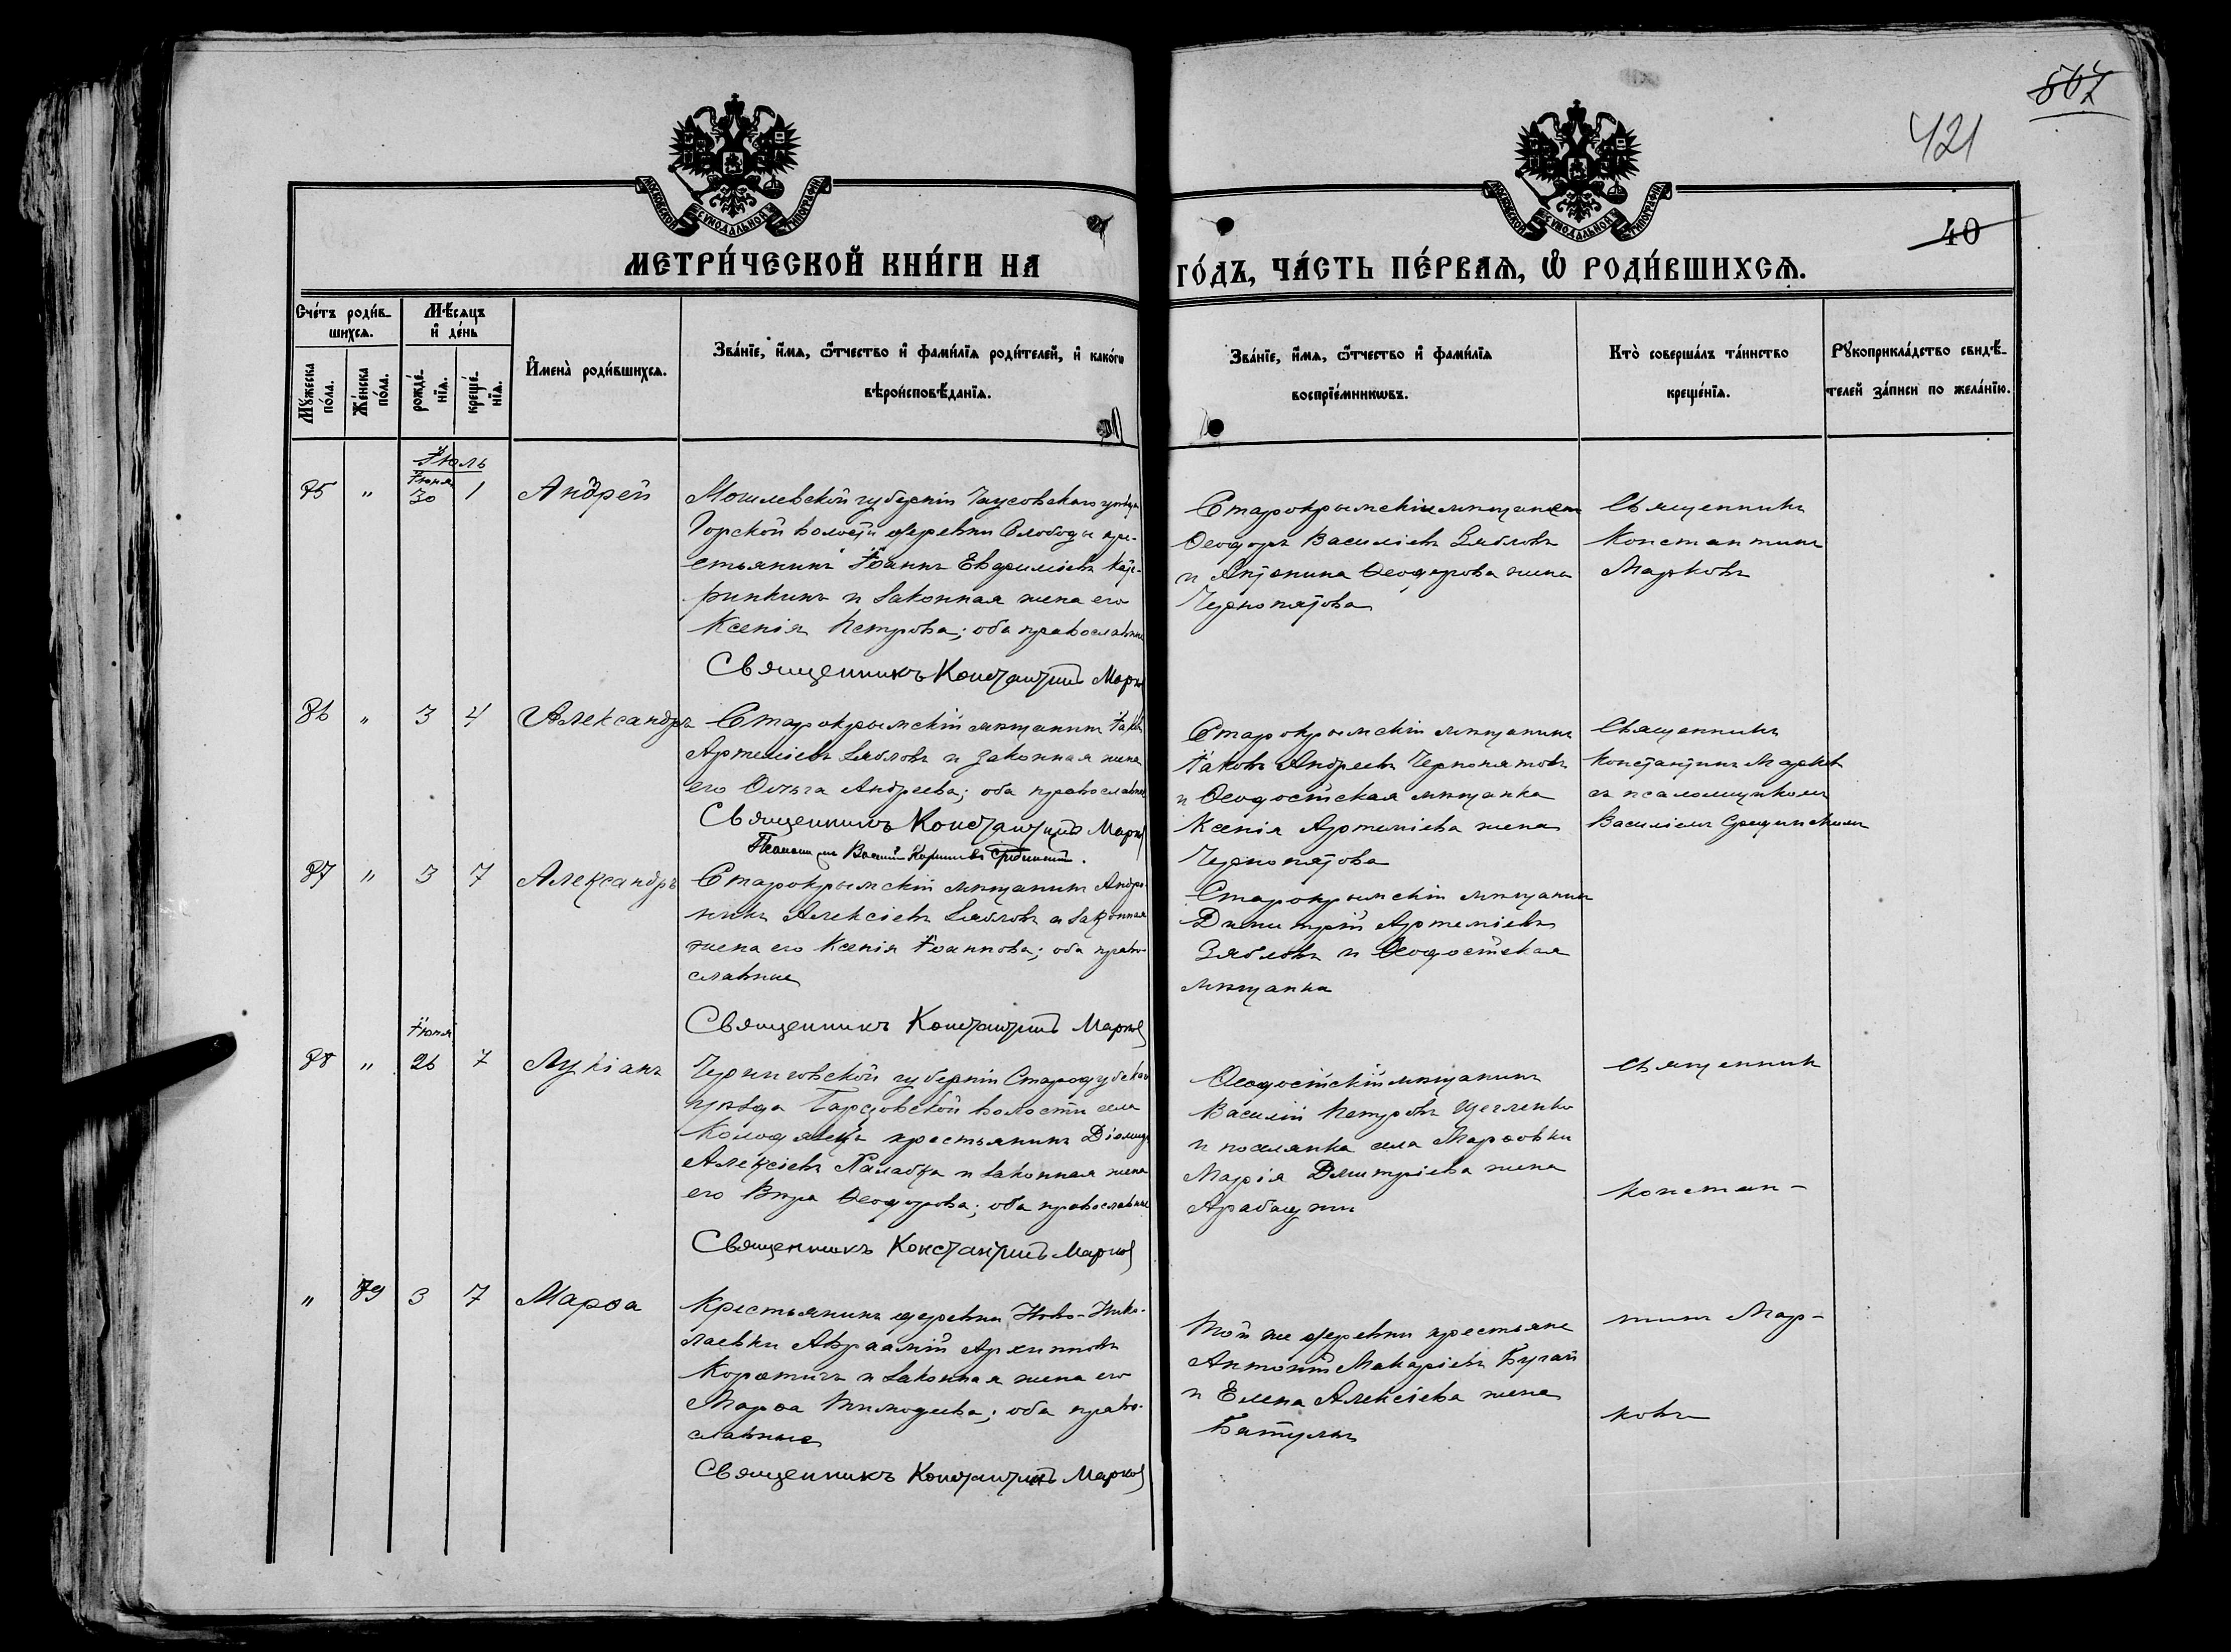 867
421
40
МОСКОВСКОЙ СУНОДАЛЬНОЙ ТИПОГРАФІИ
МОСКОВСКОЙ СУНОДАЛЬНОЙ ТИПОГРАФІИ
МЕТРИ́ЧЕСКОЙ КНИ́ГИ НА
ГО́ДЪ, ЧА́СТЬ ПЕ́РВАѦ, Ѡ РОДИ́ВШИХСѦ.
Сче́тъ роди́в-
шихсѧ.
Мꙋжеска по́ла.
Же́нска по́ла.
Мѣ́сѧцъ
и҆ де́нь
рожде́нїѧ.
креще́нїѧ.
И҆мена̀ роди́вшихсѧ.
Зва́нїе, и҆́мѧ, ѻ҆́тчество и҆ фами́лїѧ роди́телей, и҆ како́гѡ
вѣроисповѣ́данїѧ.
Зва́нїе, и҆́мѧ, ѻ҆́тчество и҆ фами́лїѧ
воспрїе́мникѡвъ.
Кто̀ соверша́лъ та́инство
креще́нїѧ.
Рꙋкоприкла́дство свидѣ́-
телей за́писи по жела́нїю.
Іюль
85 " Іюня 30 1 Андрей
Могилевской губерніи Чаусовскаго уѣзда
Горской волости деревни Слободы кре-
стьянинъ Іоаннъ Евѳиміевъ
и законная жена его
Ксенія Петрова; оба православные
Священникъ Константинъ Марков
Старокрымскій мѣщанинъ
Ѳеодоръ Василіевъ Зябловъ
и Антонина Ѳеодорова жена
Чернопятова
Священникъ
Константинъ
Марковъ
86 " 3 4 Александръ
Старокрымскій мѣщанинъ Іаковъ
Артеміевъ Зябловъ и законная жена
его Ольга Андреева; оба православные
Священникъ Константинъ Марков
Псаломщикъ Василій
Старокрымскій мѣщанинъ
Іаковъ Андреевъ Чернопятовъ
и Ѳеодосійская мѣщанка
Ксенія Артеміева жена
Чернопятова
Священникъ
Константинъ Марковъ
съ псаломщикомъ
Василіемъ
87 " 3 7 Александръ
Старокрымскій мѣщанинъ Андро-
никъ Алексіевъ Зябловъ и законная
жена его Ксенія Іоаннова; оба право-
славные
Священникъ Константинъ Марков
Старокрымскій мѣщанинъ
Димитрій Артеміевъ
Зябловъ и Ѳеодосійская
мѣщанка
88 " Іюня 26 7 Лукіанъ
Черниговской губерніи Стародубскаго
уѣзда волости села
крестьянинъ Діомидъ
Алексіевъ и законная жена
его Вѣра Ѳеодорова; оба православные
Священникъ Константинъ Марков
Ѳеодосійскій мѣщанинъ
Василій Петровъ
и поселянка села Марѳовки
Марія Димитріева жена
Арабаджи
Священник
Констан-
" 89 3 7 Марѳа
Крестьянинъ деревни Ново-Нико-
лаевки Авраамій Архиповъ
и законная жена его
Марѳа Тимоѳеева; оба право-
славные
Священникъ Константинъ Марков
Той же деревни крестьяне
Антоній Макаріевъ Бугай
и Елена Алексіева жена
тинъ Мар-
ковъ